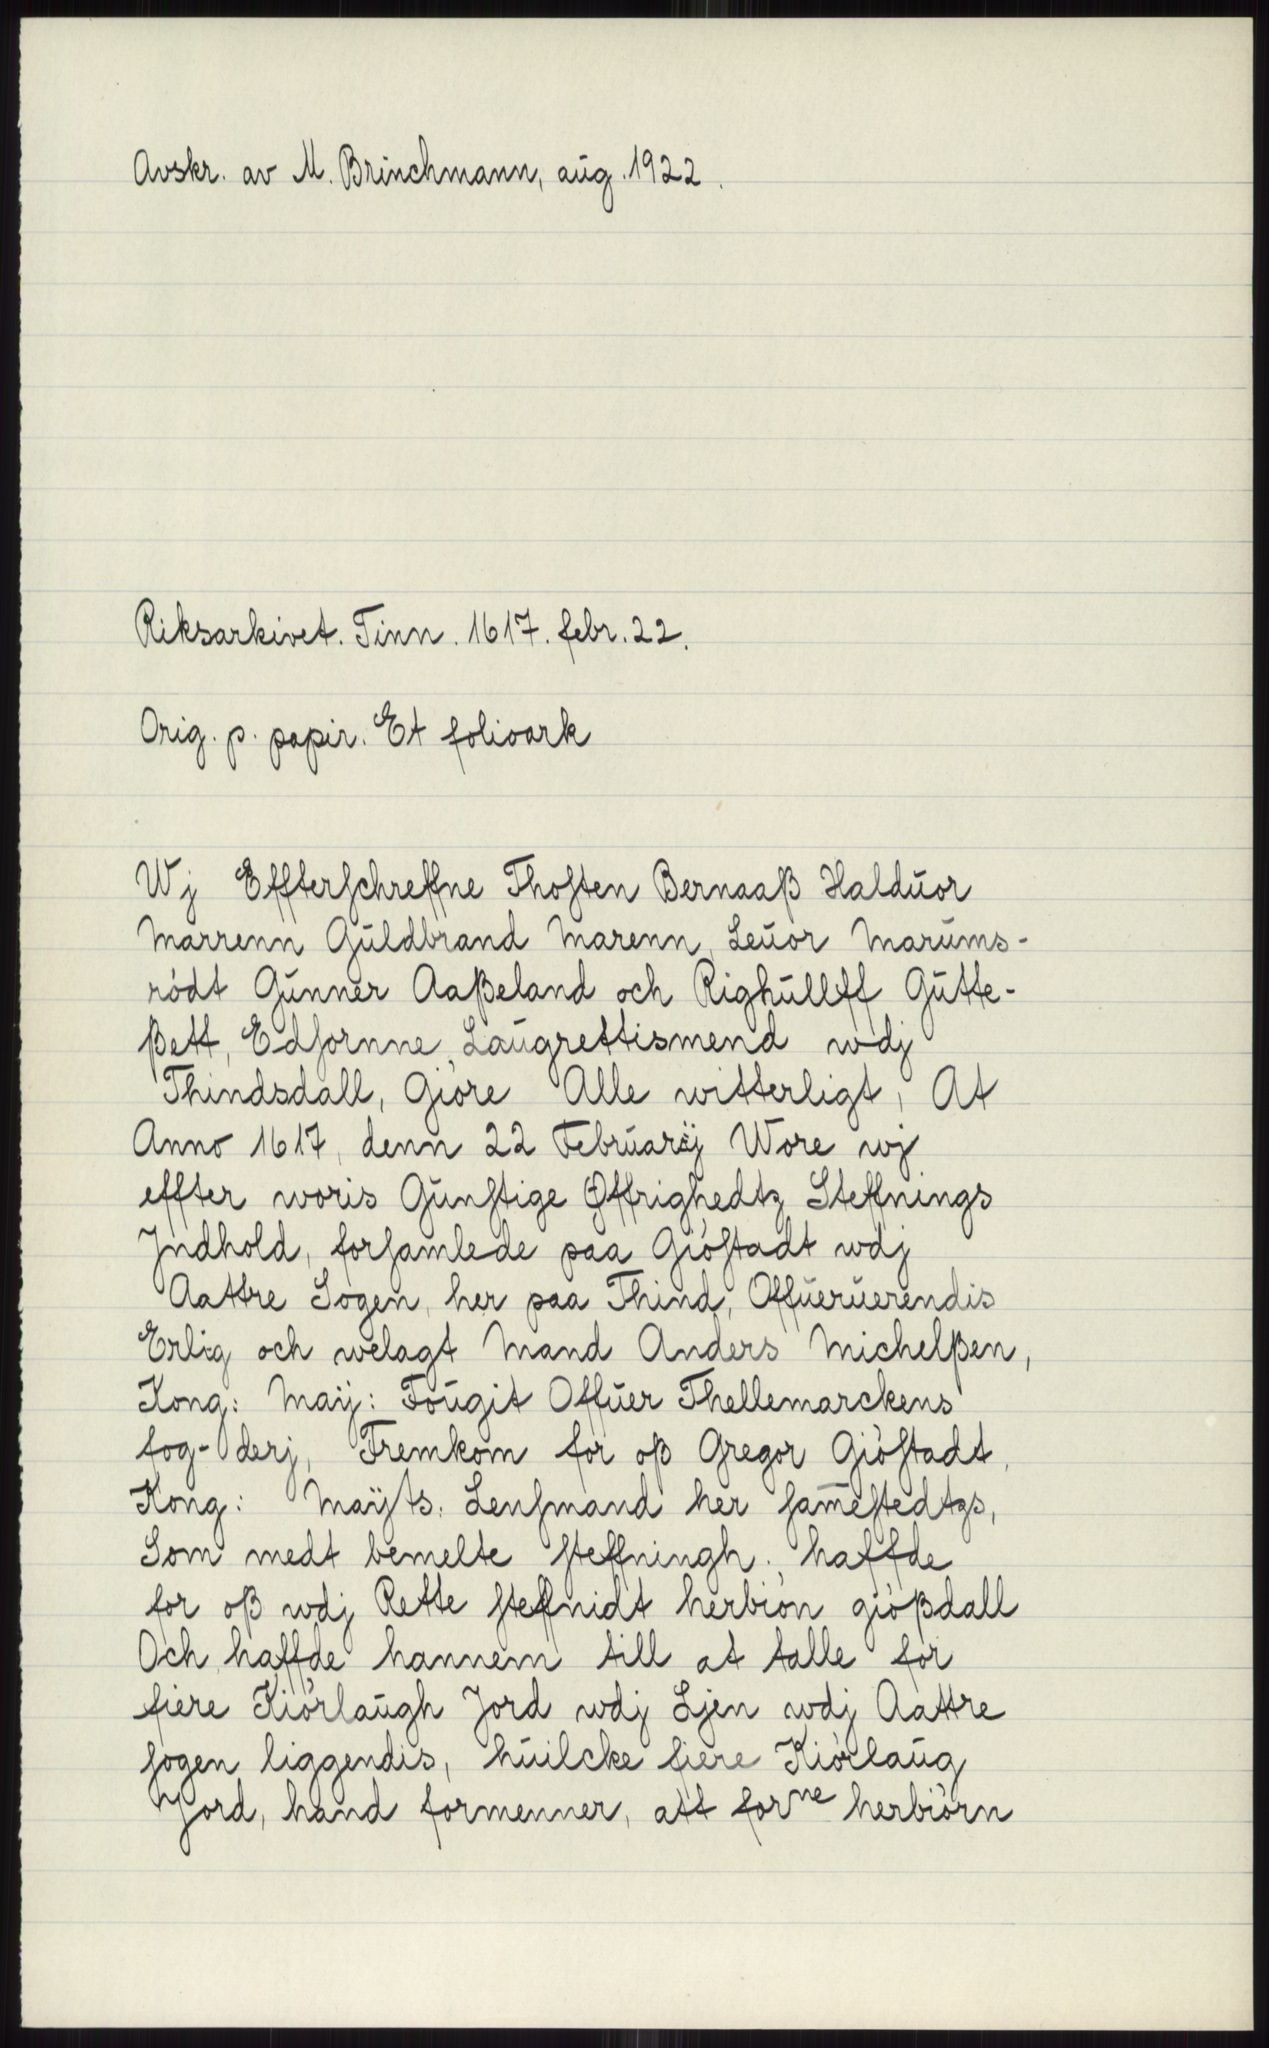 Avskr. av M. Brinchmann, aug. 1922.
Riksarkivet. Tinn. 1617. febr. 22.
Orig. p. papir. Et folioark
Wj Effterschreffne Thosten Bernaaß Halduor
Marrenn Guldbrand Marenn, Leuor Marums-
rödt Gunner Aaßeland och Righullff Gutte-
ßett, Edsornne Laugrettismend wdj
Thindsdall, Giöre Alle witterligt, At
Anno 1617, denn 22 Februarÿ Wore wj
effter woris Gunstige Øffrighedtz Steffnings
Jndhold, forsamlede paa Giöstadt wdj
Aattre Sogen, her paa Thind, Offueruerendis
Erlig och welagt Mand Anders Michelßen,
Kong: Maÿ: Fougit Offuer Thellemarckens
fog-derj, Fremkom for oß Gregor Giöstadt,
Kong: Maÿts: Lensmand her sam̅estedtzs,
Som medt bemelte steffningh, haffde
for oß wdj Rette steffnidt herbiön giößdall
Och haffde hannem till at talle for
fiere Kiörlaugh Jord wdj Ljen wdj Aattre
sogen liggendis, huilcke fiere Kiörlaug
Jord, hand formenner, att forne herbiörn